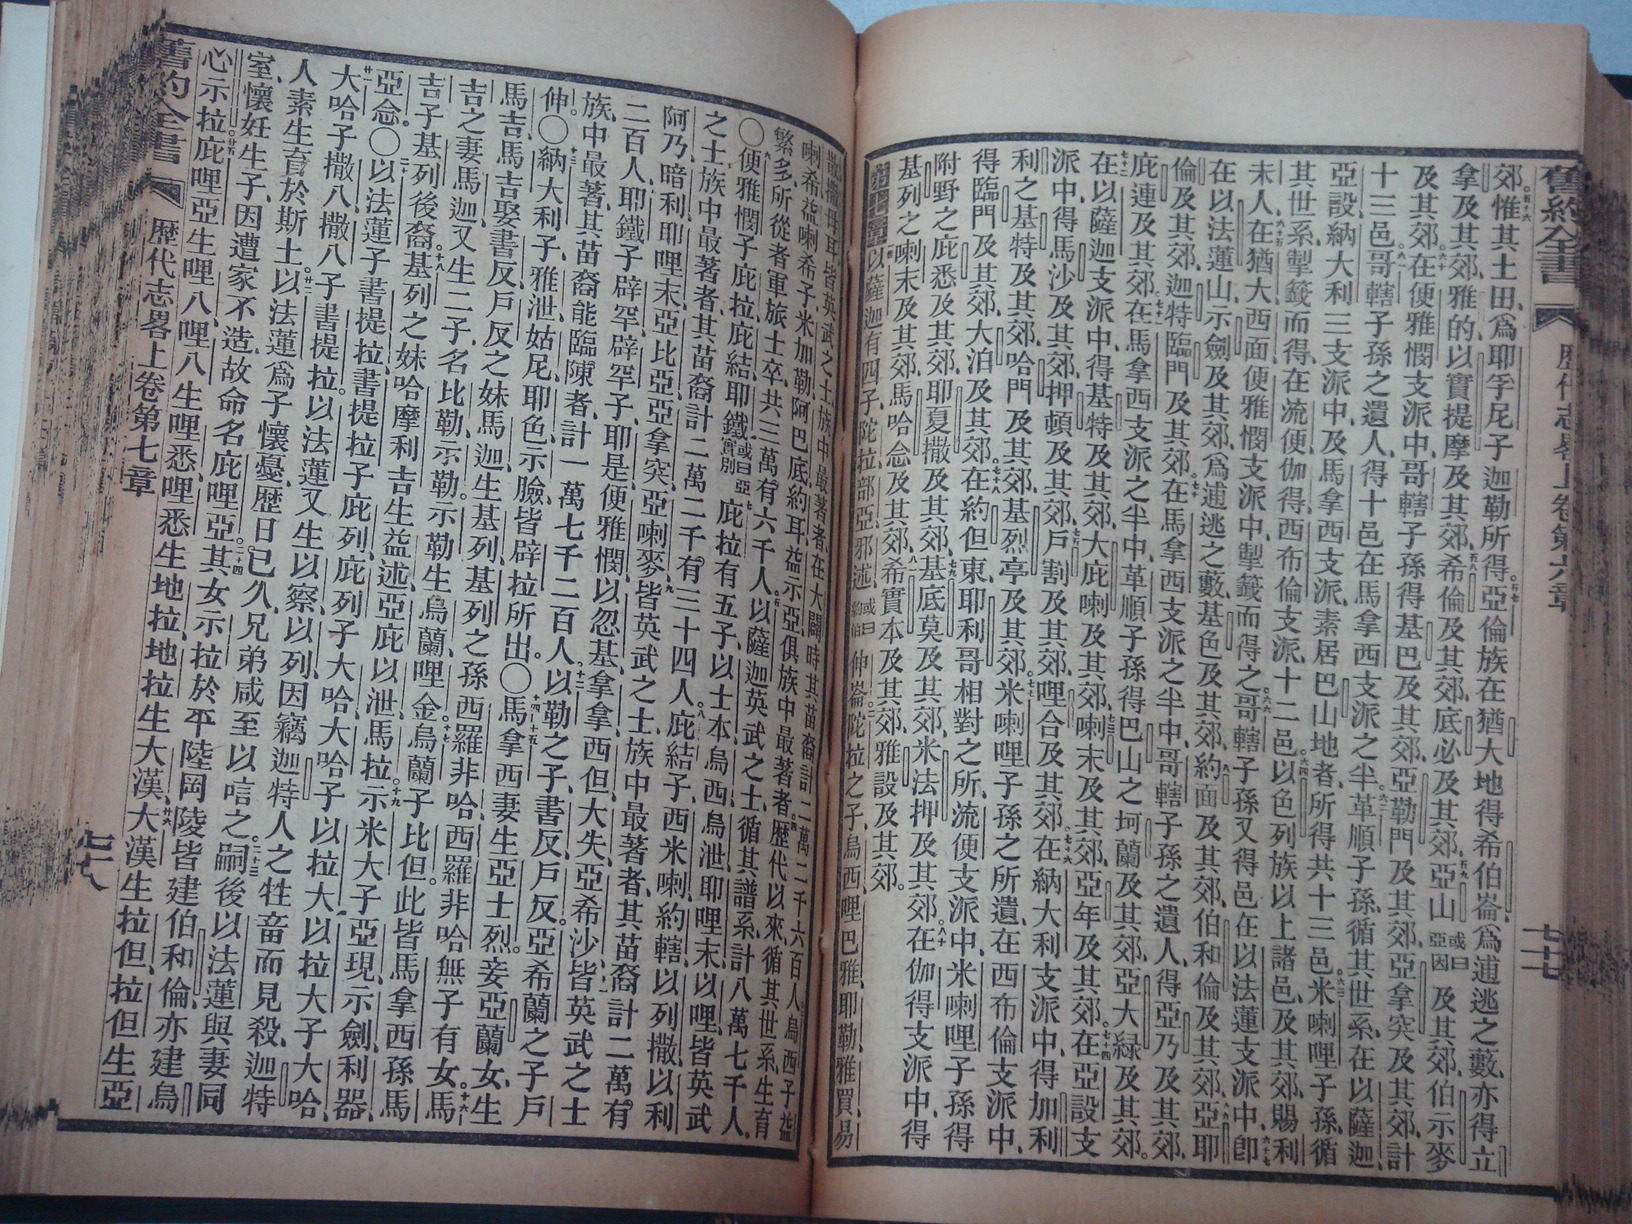 舊約全書 歷代志畧上卷第六章 七十七
郊、惟其土田、爲耶孚尼子迦勒所得。亞倫族在猶大地得希伯崙、爲逋逃之藪、亦得立
拿及其郊、雅的、以實提摩及其郊、希倫及其郊、底必及其郊、亞山或曰亞因及其郊、伯示麥
及其郊、在便雅憫支派中、哥轄子孫得基巴及其郊、亞勒門及其郊、亞拿突及其郊、計
十三邑、哥轄子孫之遺人、得十邑、在馬拿西支派之半、革順子孫、循其世系、在以薩迦、
亞設、納大利三支派中、及馬拿西支派、素居巴山地者、所得共十三邑、米喇哩子孫、循
其世系、掣籤而得、在流便、伽得、西布倫支派、十二邑、以色列族以上諸邑、及其郊、賜利
未人、在猶大、西面、便雅憫支派中、掣籤而得之、哥轄子孫、又得邑在以法蓮支派中、卽
在以法蓮山示劍及其郊、爲逋逃之藪、基色及其郊、約面及其郊、伯和倫及其郊、亞耶
倫及其郊、迦特臨門及其郊、在馬拿西支派之半中、哥轄子孫之遺人、得亞乃及其郊、
庇連及其郊、在馬拿西支派之半中、革順子孫得巴山之坷蘭及其郊、亞大綠及其郊。
在以薩迦支派中、得基特及其郊、大庇喇及其郊、喇末及其郊、亞年及其郊、在亞設支
派中、得馬沙及其郊、押頓及其郊、戶割及其郊、哩合及其郊、在納大利支派中、得加利
利之基特及其郊、哈門及其郊、基烈亭及其郊、米喇哩子孫之所遺、在西布倫支派中、
得臨門及其郊、大泊及其郊、在約但東、耶利哥相對之所、流便支派中、米喇哩子孫得
附野之庇悉及其郊、耶夏撒及其郊、基底莫及其郊、米法押及其郊、在伽得支派中、得
基列之喇末及其郊、馬哈念及其郊、希實本及其郊、雅設及其郊。
以薩迦有四子、陀拉、部亞、邪述或曰約伯伸崙、陀拉之子、烏西、哩巴雅、耶勒、雅買、易
散、撒母耳、皆英武之士、族中最著者、在大闢時、其苗裔計二萬二千六百人、烏西子益
喇希、益喇希子米加勒、阿巴底、約耳、益示亞、俱族中最著者、歷代以來、循其世系、生育
繁多、所從者、軍旅士卒、共三萬有六千人、以薩迦英武之士、循其譜系、計八萬七千人、
○便雅憫子、庇拉、庇結、耶鐵或曰亞實別庇拉有五子、以士本、烏西、烏泄、耶哩末、以哩、皆英武
之士、族中最著者、其苗裔計二萬二千有三十四人、庇結子、西米喇、約轄、以列撒、以利
阿乃、暗利、耶哩末、亞比亞、亞拿突、亞喇麥、皆英武之士、族中最著者、其苗裔計二萬有
二百人、耶鐵子辟罕、辟罕子、耶是、便雅憫、以忽、基拿拿、西但、大失、亞希沙、皆英武之士
族中最著、其苗裔能臨陳者、計一萬七千二百人、以勒之子、書反、戶反。亞希蘭之子戶
伸。○納大利子、雅泄、姑尼、耶色、示臉、皆辟拉所出。○馬拿西妻生亞士烈。妾亞蘭女、生
馬吉、馬吉娶書反、戶反之妹馬迦、生基列、基列之孫西羅非哈、西羅非哈無子有女、馬
吉之妻馬迦、又生二子、名比勒、示勒、示勒生烏蘭、哩金、烏蘭子比但。此皆馬拿西孫馬
吉子基列後裔、基列之妹哈摩利吉、生益述、亞庇以泄、馬拉。示米大子、亞現、示劍、利器、
亞念。○以法蓮子書提拉、書提拉子庇列、庇列子大哈、大哈子以拉大、以拉大子大哈、
大哈子撒八、撒八子書提拉。以法蓮又生以察、以列、因竊迦特人之牲畜而見殺、迦特
人素生育於斯土。以法蓮爲子懷憂、歷日已久、兄弟咸至以唁之、嗣後以法蓮與妻同
室、懷妊生子、因遭家不造、故命名庇哩亞、其女示拉、於平陸岡陵、皆建伯和倫、亦建烏
心示拉。庇哩亞生哩八、哩八生哩悉、哩悉生地拉、地拉生大漢、大漢生拉但、拉但生亞
舊約全書 歷代志畧上卷第七章 七十八